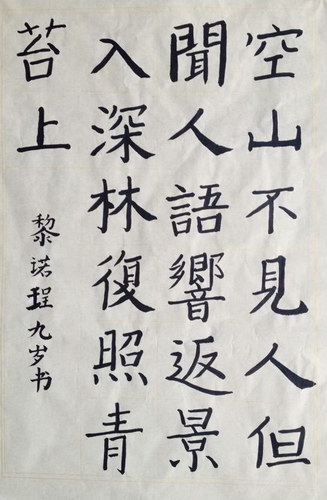 空山不見人但
聞人語響返景
入深林復照青
苔上
黎诺珵九岁书